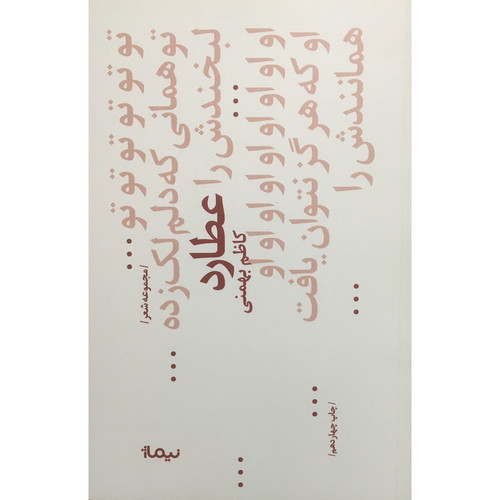 تو تو تو تو تو تو ...
/مجموعه شعر/
تو همانی که دلم لک زده ...
لبخندش را ...
عطارد
کاظم بهمنی
او او او او او او او او
او که هرگز نتوان یافت ...
همانندش را ...
/چاپ چهاردهم/
نیماژ